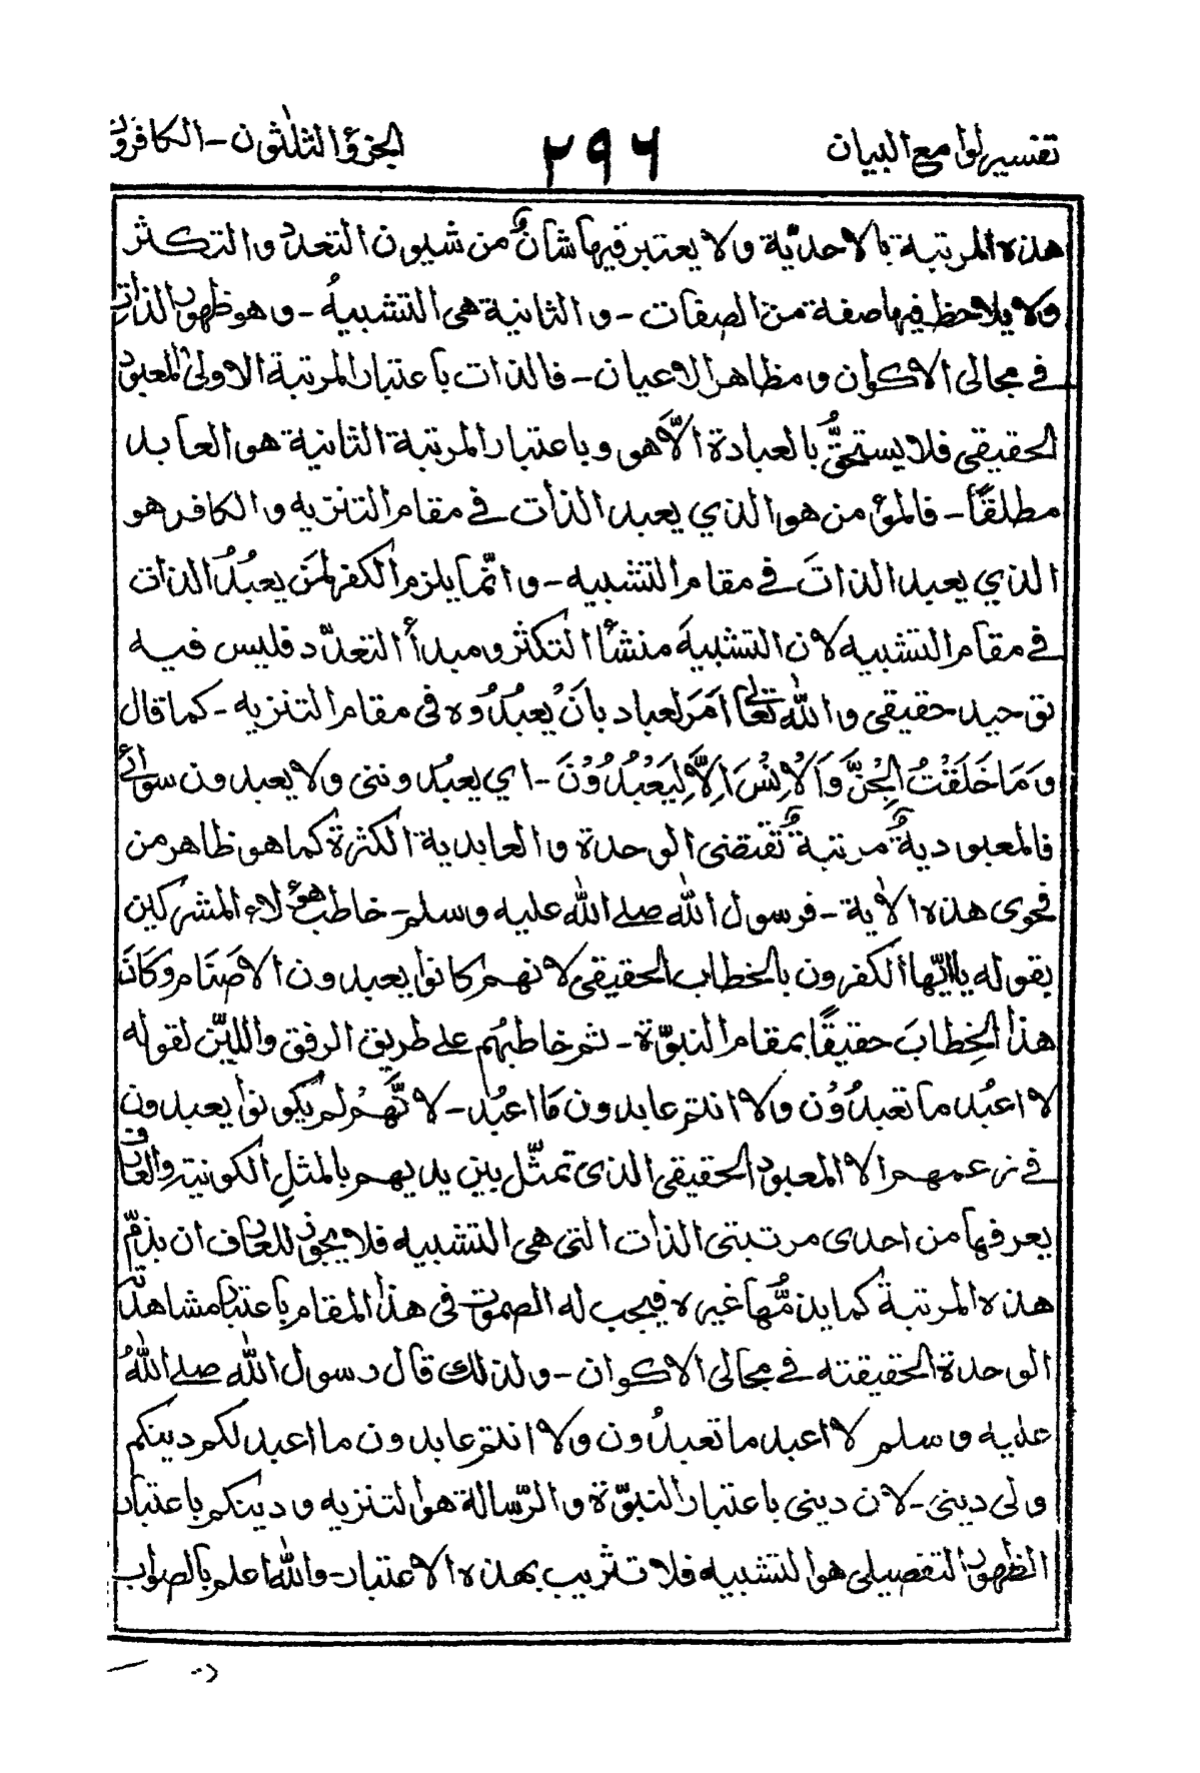 تفسير لوامع البيان ٢٩٦ الجزؤ الثلثون - الكافرون
هذه المرتبة بالاحديّة ولا يعتبر فيها شأنٌ من شيون التعدد والتكثر
ولا يلاحظ فيها صفة من الصفات - والثانية هى التشبيهُ - وهو ظهور الذات
فى مجالى الاكوان ومظاهر الاعيان - فالذات باعتبار المرتبة الاولى المعبود
الحقيقى فلا يستحقُّ بالعبادة الاّ هو وباعتبار المرتبة الثانية هو العابد
مطلقًا - فالمؤمن هو الذي يعبد الذات فى مقام التنزيه والكافر هو
الذي يعبد الذاتَ فى مقام التشبيه - وانّما يلزم الكفر لمَن يعبُدُ الذات
فى مقام التشبيه لان التشبيهَ منشأ التكثر ومبدأ التعدّد فليس فيه
توحيد حقيقى والله تعالى امَرَ لعباد بانَ يُعبُدُوه فى مقام التنزيه - كما قال
وَمَا خَلَقْتُ الْجِنَّ وَالْاِنْسَ اِلَّا لِيَعْبُدُوْنَ - اي يعبُدوننى ولا يعبدون سوائى
فالمعبوديةُ مرتبةٌ تُقتضى الوحدة والعابدية الكثرة كما هو ظاهر من
فحوى هذه الاٰية - فرسول الله صلے الله عليه وسلم - خاطب هؤلاء المشركين
بقوله ياايّها الكفرون بالخطاب الحقيقى لانهم كانوا يعبدون الاصَنَام وكَانَ
هذا الخِطابَ حقيقًا بمقام النبوّة - ثم خاطبَهُم على طريق الرفق واللين لقوله
لا اعبُد ما تعبدُوْن ولا انتم عابدون مَا اعبُد - لانَّهُمْ لم يكونوا يعبدون
فى زعمهم الا المعبود الحقيقى الذى تمثّل بين يديهم بالمثلِ الكونيّة والعارف
يعرفها من احدى مرتبتى الذات التى هى التشبيه فلا يجوز للعارف ان يذمّ
هذه المرتبة كما يذمُّها غيره فيجب له الصموت فى هذا المقام باعتبار مشاهدة
الوحدة الحقيقته فى مجالى الاكوان - ولذلك قال رسول الله صلے اللهُ
عليه وسلم لا اعبد ما تعبدُون ولا انتم عابدون ما اعبد لكم دينكم
ولى دينى - لان دينى باعتبار النبوّة والرّسالة هو التنزيه ودينكم باعتبار
الظهور التفصيلى هو التشبيه فلا تثريب بهذه الاعتبار - والله اعلم بالصواب